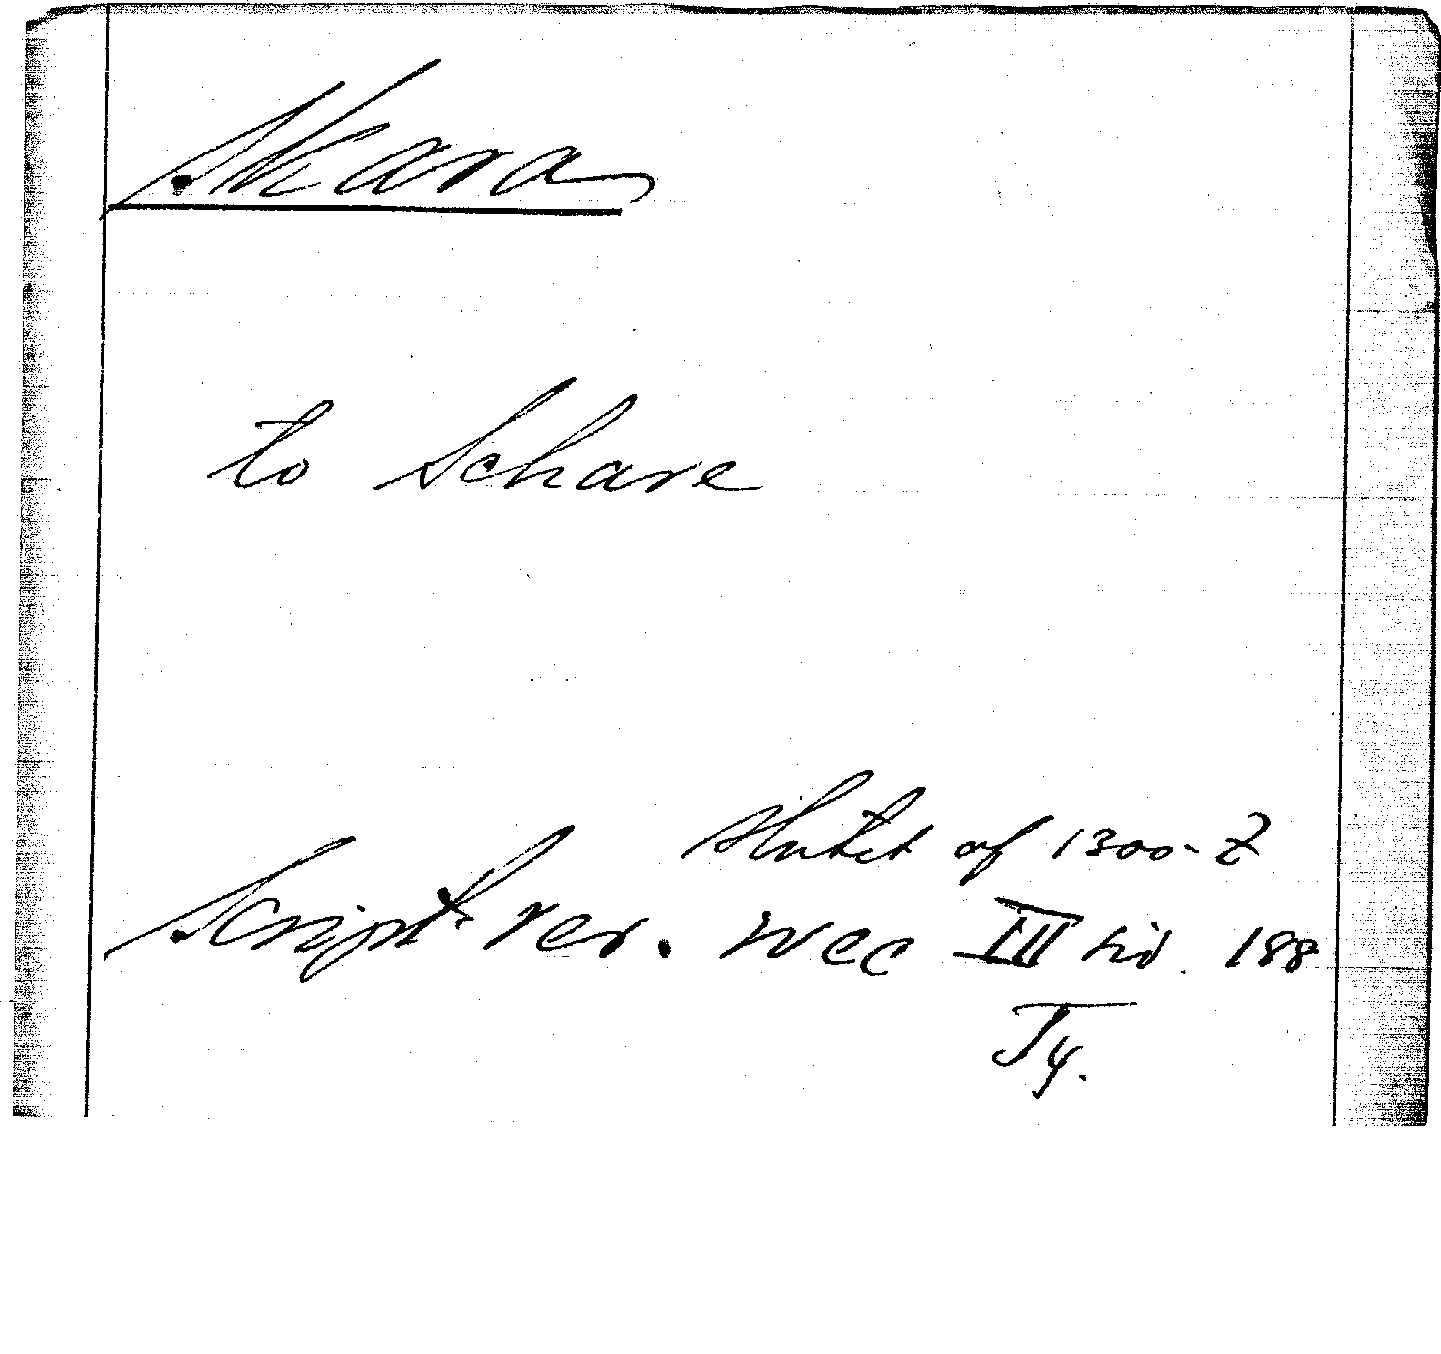 Skara
to Schare
slutet af 1300-t
Script. rer. svec III sid. 188
Ty.